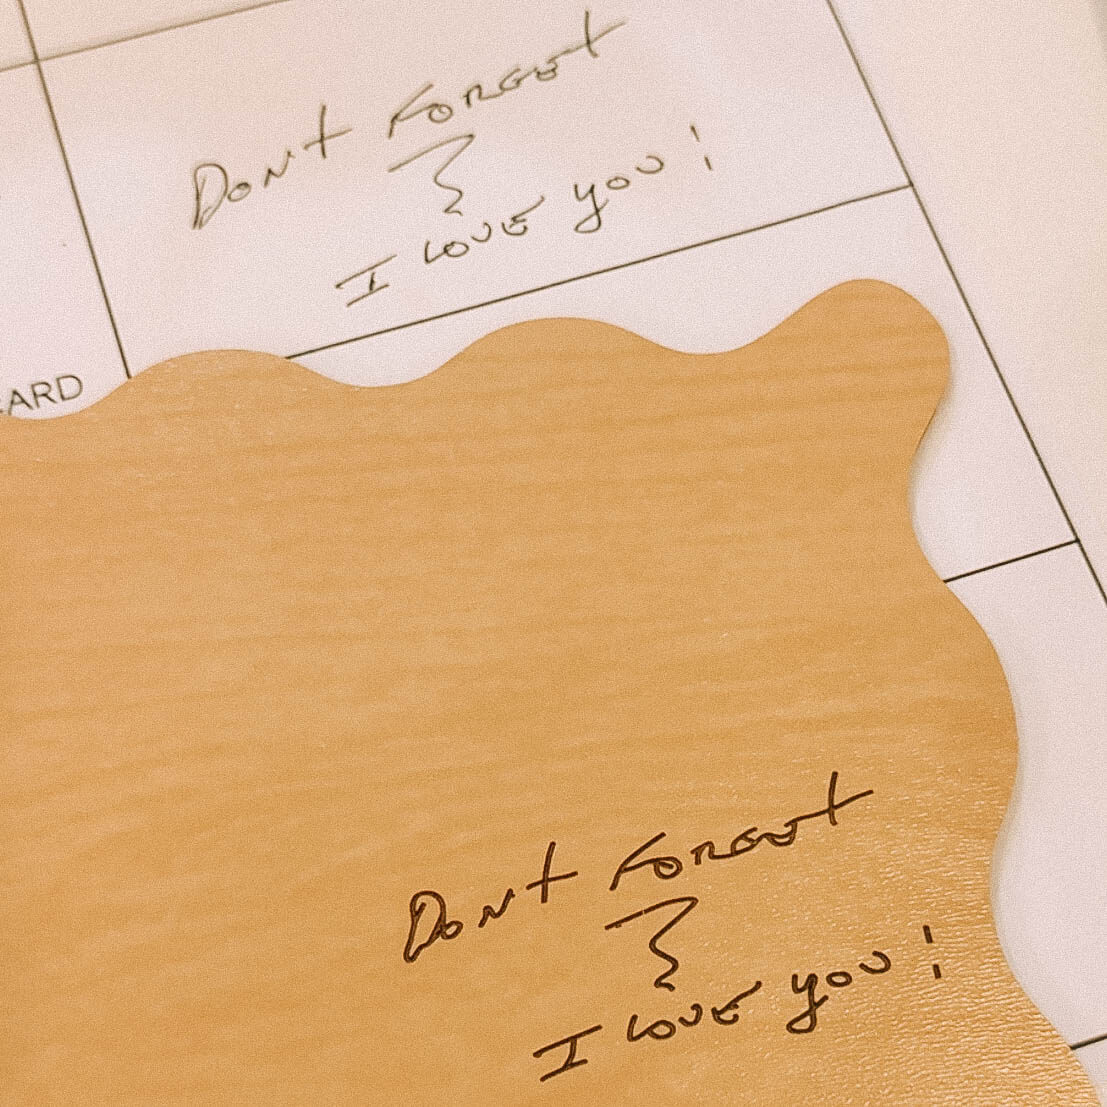 Dont Forget
I Love you!
ARD
Dont Forget
I Love you!